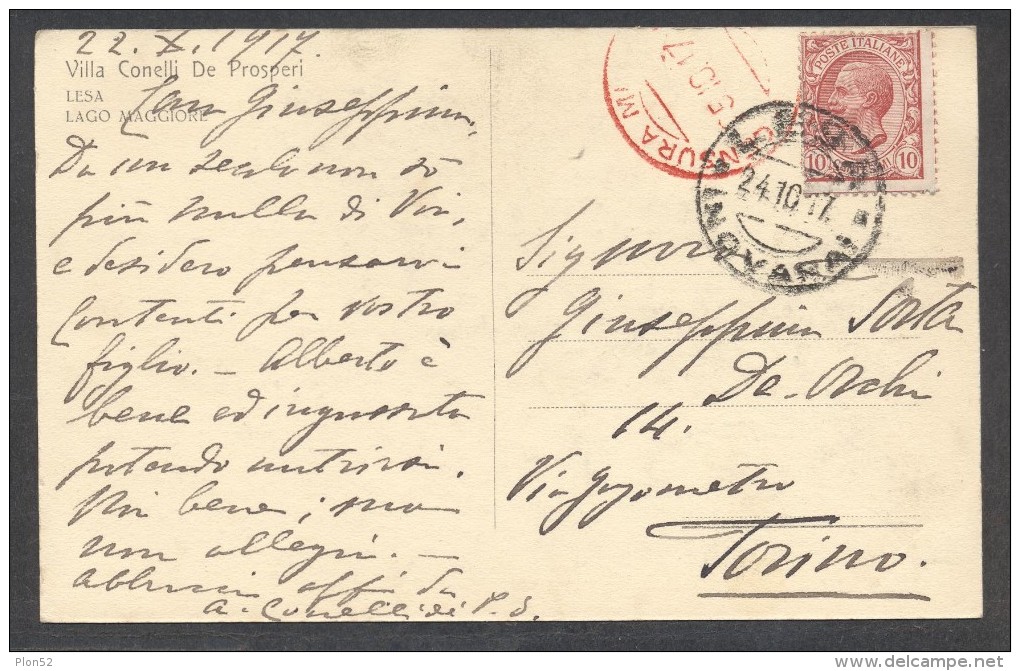 22. X. 1917.
Villa Conelli De Prosperi
LESA
LAGO MAGGIORE
Cara Giuseppina,
Da un secolo non so
più nulla di Voi,
e desidero pensarvi
contenti per vostro
figlio. - Alberto è
bene ed ingrassato
potendo nutrirsi.
Noi bene; ma
non allegri. -
Abbracci aff. da
A. Conelli di P. S.
POSTE ITALIANE
10 10
NSURA M
24.10.17.
NOVARA
Signora
Giuseppina Sorta
De-Orchi
14.
Via Gazometro
Torino.
Plon52
delcampe.net